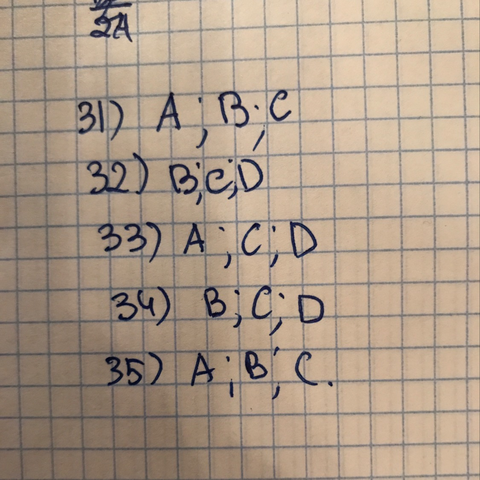 2A
31) A; B; C
32) B; C; D
33) A; C; D
34) B; C; D
35) A; B; C.